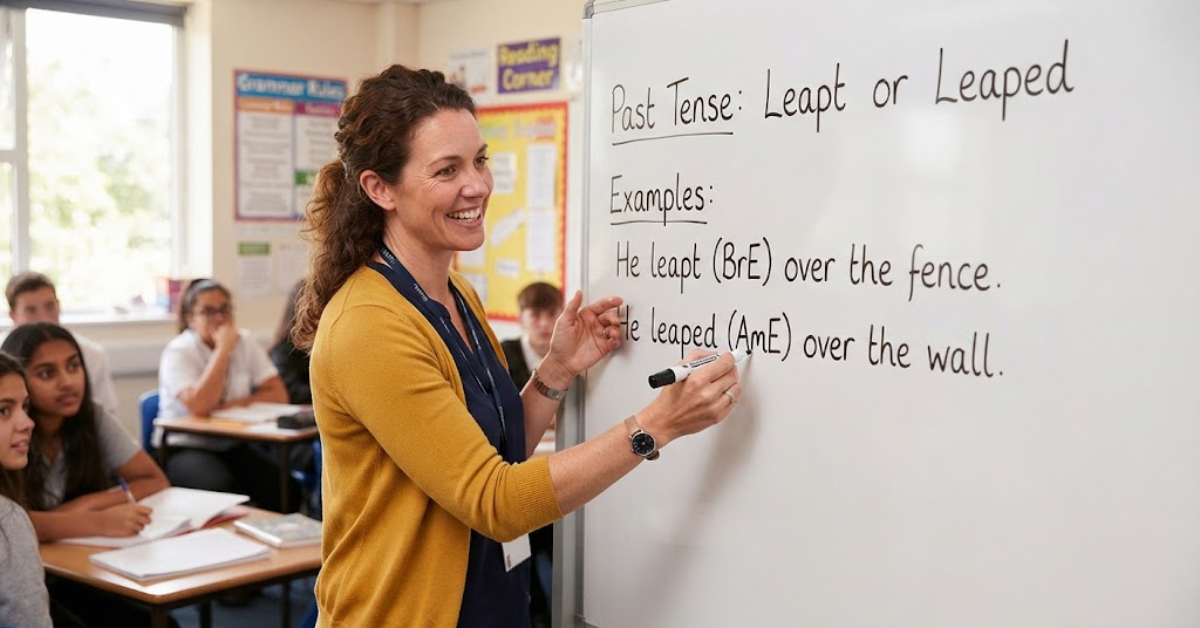 Grammar Rules
Reading
Corner
Past Tense: Leapt or Leaped
Examples:
He leapt (BrE) over the fence.
He leaped (AmE) over the wall.